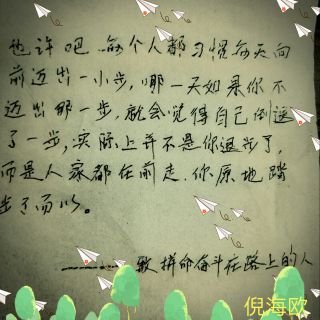 也许吧,每个人都习惯每天向
前迈出一小步,哪一天如果你不
迈出那一步,就会觉得自己倒退
了一步,实际上并不是你退步了,
而是人家都在前走,你原地踏
步了而以。
致拼命奋斗在路上的人
倪海欧